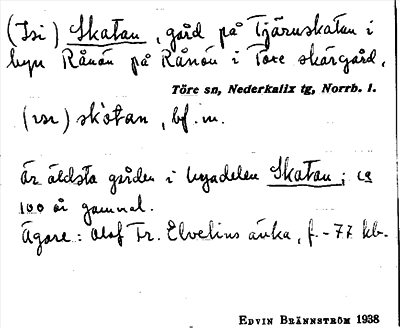 (Isi) Skatan, gård på Tjäruskatan i
byn Rånön på Rånön i Töre skärgård,
Töre sn, Nederkalix tg, Norrb. l.
(vsr) skòtan, bf. m.
är äldsta gården i byadelen Skatan; ca
100 år gammal.
Ägare: Olof Fr. Elvelins änka, f. -77 kb.
EDVIN BRÄNNSTRÖM 1938